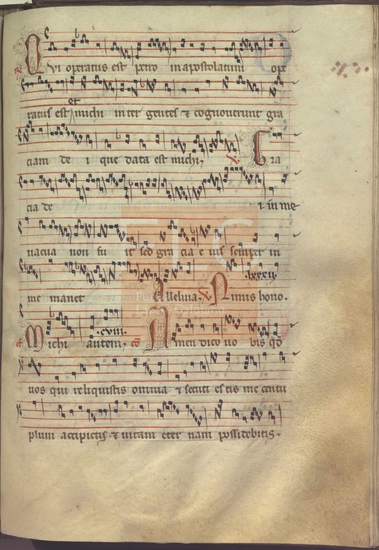 Qui operatus est petro in apostolatum ope
ratus est et michi inter gentes & cognouerunt gra
ciam de i que data est michi. Gra
cia de i in me
uacua non fu it sed gra cia e ius semper in
me manet Alleluia. Nimis hono. .lxxxii.
Michi autem. .cviii. Amen dico uo bis qd
uos qui reliquistis omnia & secuti es tis me centu
plum accipietis & uitam eter nam possidebitis.